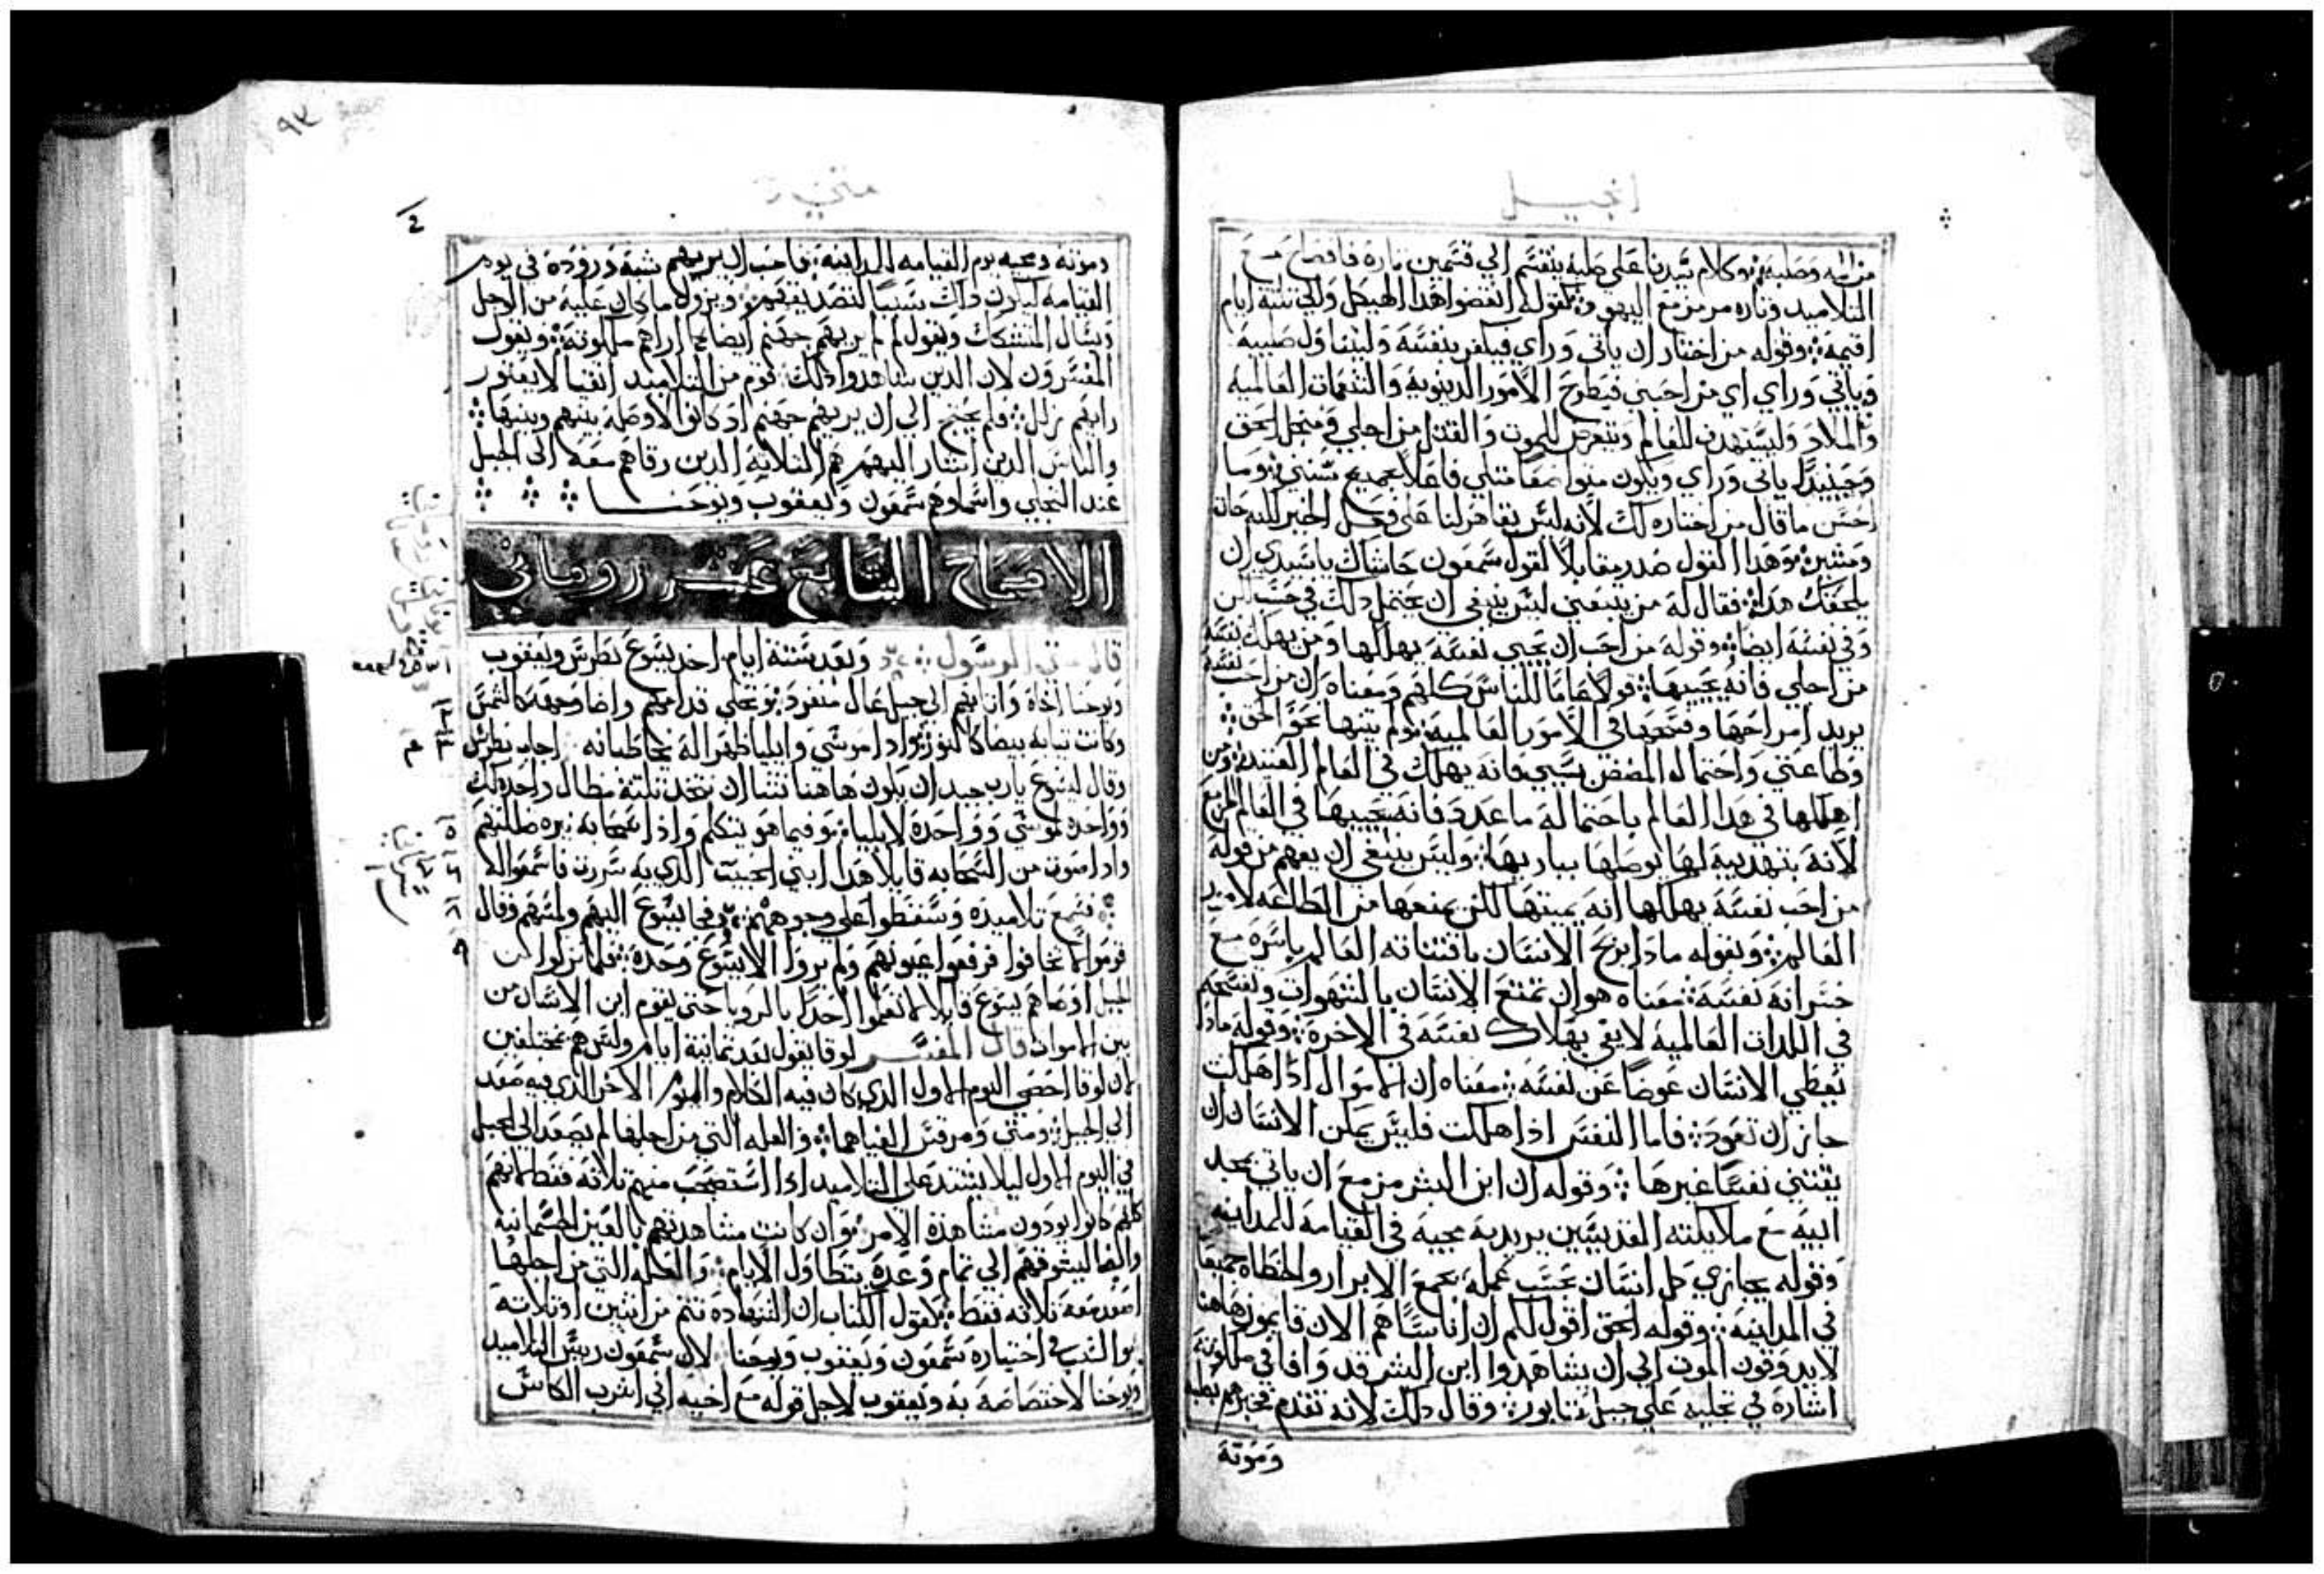 انجيل
من المه وصلبه وكلام سيدنا على صلبه ينقسم الي قسمين تارة فافصاح مع
التلاميد وتاره مرمز مع اليهود كقوله انقضوا هدا الهيكل والي ثلثة ايام
اقيمه وقوله من اختار ان ياتي وراي فيكفر بنفسه وليتناول صليبه
وياتي وراي اي من احبني فيطرح الامور الدنيويه والنعمات العالميه
والملاد وليستهدف للفالم ويتعرض للموت والقتل من اجلي ومن اجل الحق
وحينيدا ياتي وراي ويكون متواضعا مثلي فاعلا بجميع سنني وما
احسن ما قال من اختار دلك لانه ليس يقاهرنا على فعل الخير لكنه حاث
ومشير وهدا القول صدر مقابلا لقول سمعون حاشاك ياسيدي ان
يلحقك هدا فقال له من يتبعني ليس ينبغي ان يحتمل دلك في حسب لكن
وفي نفسه ايضا وقوله من احب ان يحيي نفسه يهلكها ومن يهلك نفسه
من اجلي فانه يحييها قولا عاما للناس كلهم ومعناه ان من احب نفسه
يريد امراحها وفتحها في الامور العالميه ولم ينبها نحو الحق
وطاعتي واحتماله المضض بسببي فانه يهلك في العالم العتيد ومن
اهلكها في هدا العالم باحتماله ما عدد فانه يحييها في العالم المزمع
لانه بتهديبه لها يوصلها بباريها وليس ينبغي ان يفهم من قوله
من احب نفسه يهلكها انه يميتها لكن يمنعها من الطاعه لامور
العالم وبقوله مادا يربح الانسان باقتنائه العالم باسره مع
خسرانه نفسه معناه هو ان تمتع الانسان بالشهوات وتفسحه
في اللدات العالميه لا يفي بهلاك نفسه في الاخرة وقوله مادا
يعطي الانسان عوضا عن نفسه معناه ان الاموال ادا هلكت
جاز ان تعود فاما النفس ادا هلكت فليس يمكن الانسان ان
يقتني نفسا غيرها وقوله ان ابن البشر مزمع ان ياتي بمجد
ابيه مع ملايكته القديسين يريد به مجيه في القيامه للمداينه
وقوله يجازي كل انسان بحسب عمله يجمع الابرار والخطاه جميعا
في المداينه وقوله الحق اقول لكم ان اناسا هم الان قايمون هاهنا
لا يدوقون الموت الي ان يشاهدوا ابن البشر قد وافا في ملكوته
اشارة في تجليه على جبل تابور وقال دلك لانه تقدم فخبرهم بصلبه
وموته
٩٣
متي
وموته ومجيه يوم القيامه للمداينه فاحب ان يريهم شبه وروده في يوم
القيامه ليكون دلك سببا لتصديقهم ويزول ما كان عليه من الاجل
ويسال المتشكك ويقول لم لم يريهم جهنم ايضا كما اراهم ملكوته ويقول
المفسرون لان الدين شاهدوا دلك قوم من التلاميد اتقيا لا يعتور
رايهم زلل فلم يحتج الي ان يريهم جهنم اد كانوا لا وصله بينهم وبينها
والناس الدين اشار اليهم هم الثلاثة الدين رقاهم معه الى الجبل
عند التجلي واسماوهم سمعون ويعقوب ويوحنا
الاصحاح السابع عشر روماني
قال متي الرسول وبعد ستة ايام اخد يسوع بطرس ويعقوب
ويوحنا اخاه واتا بهم الي جبل عال منفرد وتجلي قدامهم واضا وجهه كالشمس
وكانت تيابه بيضا كالنور وادا موسى وايليا ظهرا له يخاطبانه اجاب بطرس
وقال ليسوع يارب جيد ان يكون هاهنا نشا ان نتخد ثلثة مظال واحده لك
وواحدة لموسى وواحدة لايليا وفيما هو يتكلم واذا سحابه نيره ظللتهم
وادا صوت من السحابه قايلا هدا ابني الحبيب الدي به سررت فاسمعوا له
فسمع تلاميده وسقطوا على وجوههم فجا يسوع اليهم ولمسهم وقال
قوموا لا تخافوا فرفعوا عيونهم ولم يروا الا يسوع وحده فلما نزلوا من
الجبل اوصاهم يسوع قايلا لا تعلموا احدا بالرويا حتي يقوم ابن الانسان من
بين الاموات قال المفسر لوقا يقول بعد ثمانية ايام وليس هم مختلفين
لان لوقا احصى اليوم الاول الدي كان فيه الكلام واليوم الاخر الدي فيه صعد
الي الجبل ومتي ومرقس الغياهما والعله التي من اجلها لم يصعد الي الجبل
في اليوم الاول ليلا يشتد على التلاميد ادا استصحب منهم تلاثه فقط لانهم
كلهم كانوا يودون مشاهدة الامر وان كانت مشاهدتهم بالعين الجسمانيه
والثانا ليشوقهم الي تمام وعده بتطاول الايام والعله التي من اجلها
اصعد معه ثلاثه فقط لقول الكتاب ان الشهاده تتم من اثنين او ثلاثة
والسبب في اختياره سمعون ويعقوب ويوحنا لان سمعون رييس التلاميد
ويوحنا لاختصاصه به ويعقوب لاجل قوله مع اخيه اني اشرب الكاس